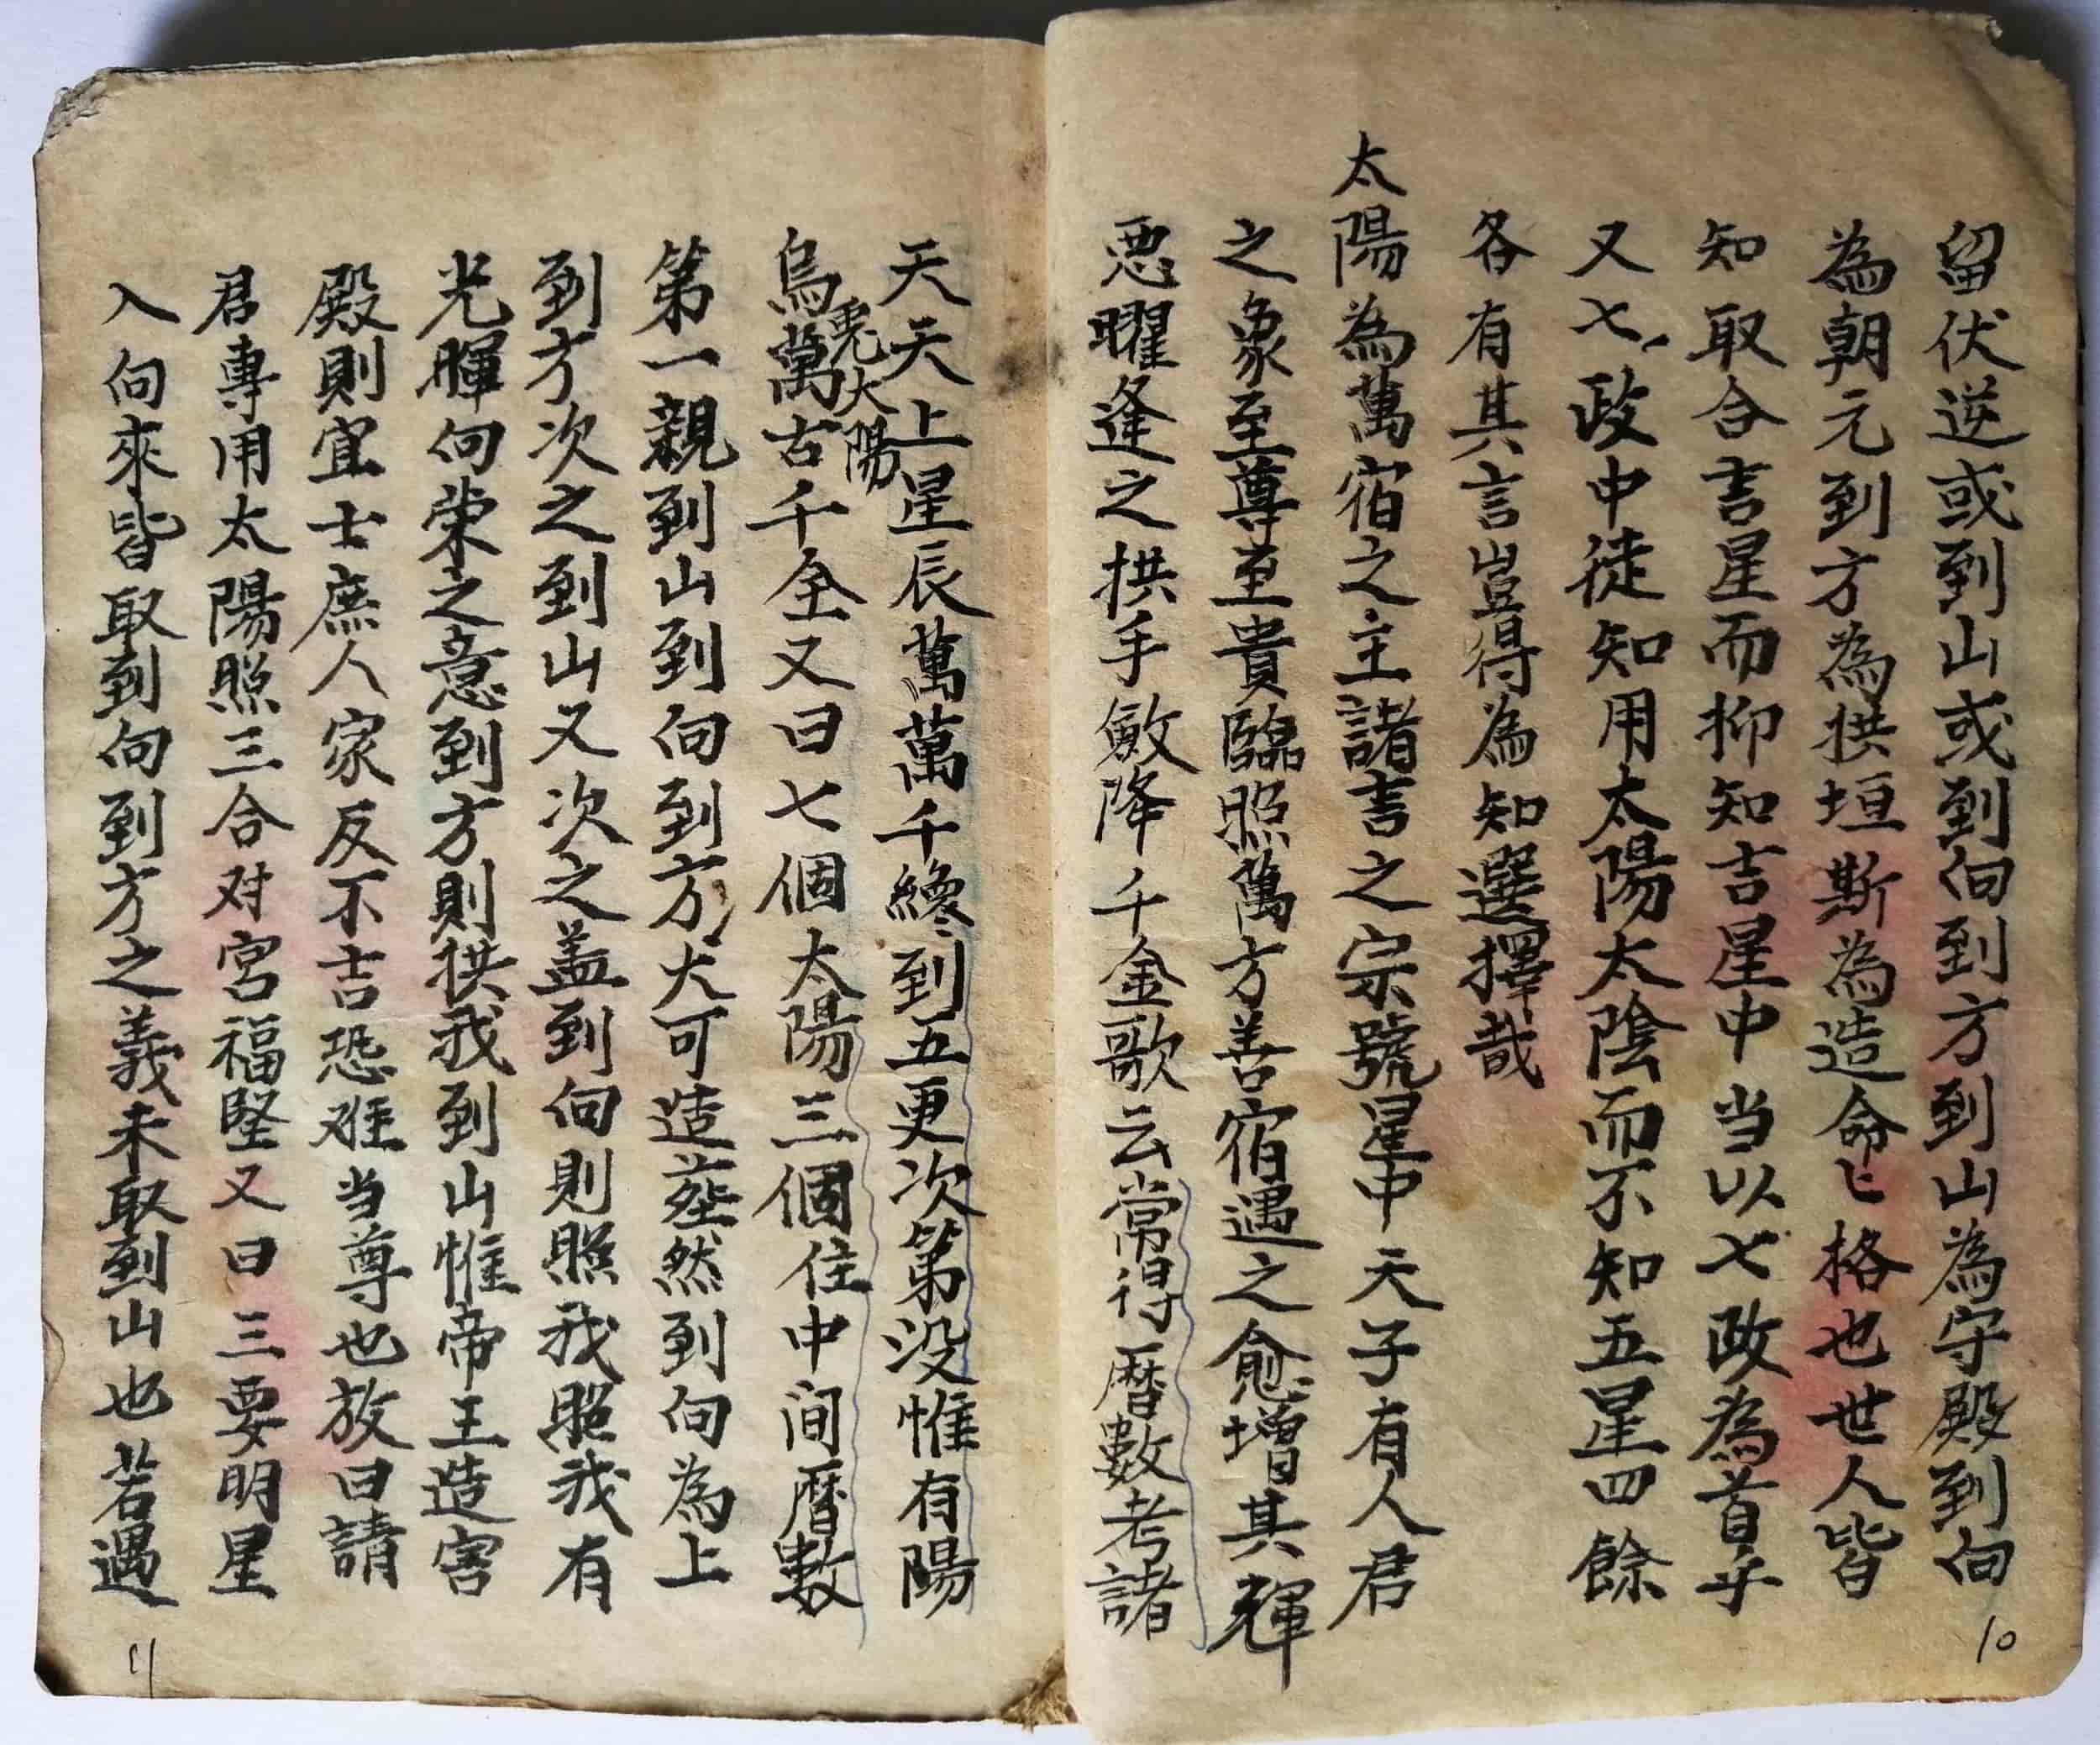 留伏逆或到山或到向到方到山為守殿到向
為朝元到方為拱垣斯為造命匕格也世人皆
知取合吉星而抑知吉星中当以七政為首乎
又七政中徒知用太陽太陰而不知五星四餘
各有其言豈得為知選擇哉
太陽為萬宿之主諸吉之宗號星中天子有人君
之象至尊至貴臨照萬方善宿遇之愈增其輝
悪曜逢之拱手斂降千金歌云常得曆數考諸
天天上星辰萬萬千纔到五更次第没惟有陽
烏萬古千全又曰七個太陽三個住中间曆數
兎太陽
第一親到山到向到方大可造塟然到向為上
到方次之到山又次之盖到向則照我照我有
光暉向荣之意到方則拱我到山惟帝王造宫
殿則宜士庶人家反不吉恐难当尊也放曰請
君專用太陽照三合对宮福堅又曰三要明星
入向來皆取到向到方之義未取到山也若遇
10
11